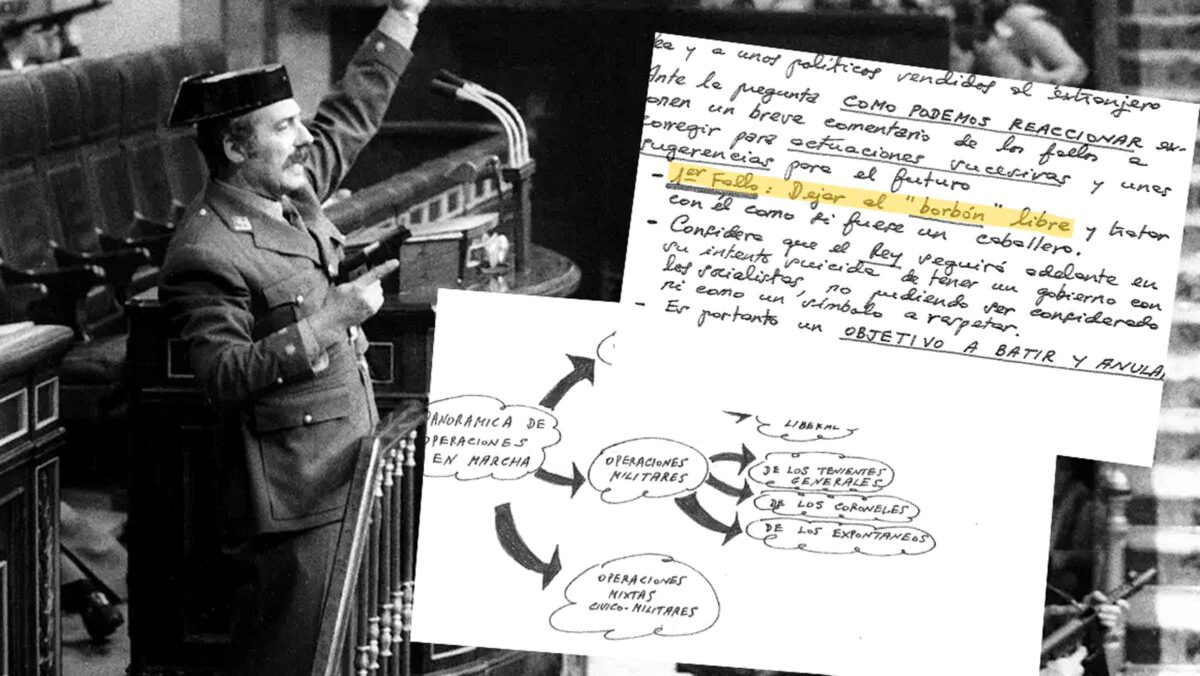 ea y a unos políticos vendidos al extranjero
Ante la pregunta COMO PODEMOS REACCIONAR ex-
ponen un breve comentario de los fallos a
corregir para actuaciones sucesivas y unas
sugerencias para el futuro
- 1er Fallo: Dejar al "borbón" libre y tratar
con él como si fuese un caballero.
- Considera que el Rey seguirá adelante en
su intento suicida de tener un gobierno con
los socialistas, no pudiendo ser considerado
ni como un símbolo a respetar.
- Es portanto un OBJETIVO A BATIR Y ANULA
PANORAMICA DE
OPERACIONES
EN MARCHA
OPERACIONES
MILITARES
LIBERAL
DE LOS TENIENTES
GENERALES
DE LOS CORONELES
DE LOS EXPONTANEOS
OPERACIONES
MIXTAS
CIVICO-MILITARES